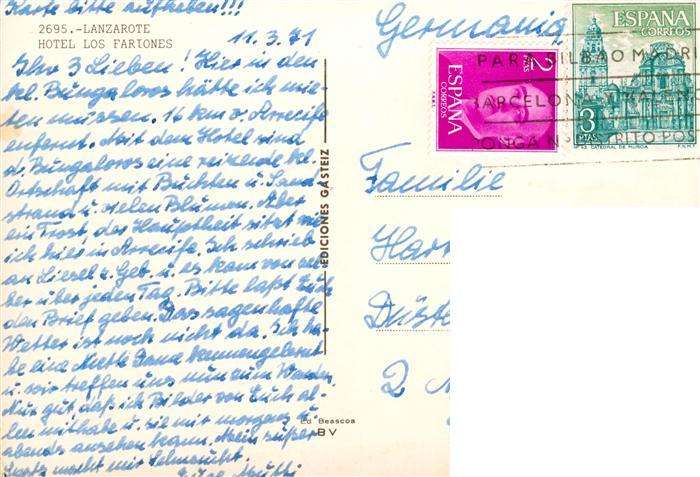 Karte bitte aufheben!!!
2695.-LANZAROTE
HOTEL LOS FARIONES
11.3.71
Ihr 3 Lieben! Hier in den
kl. Bungalows hätte ich mie-
ten müssen. 16 km v. Arrecife
entfernt. Mit dem Hotel sind
d. Bungalows eine reizende kl.
Ortschaft mit Buchten u. Sand
strand u. vielen Blumen. Aber
ein Trost, der Hauptheit sitzt
ich hier in Arrecife. Ich schrieb
an Liesel z. Geb. u. es kam von
über jeden Tag. Bitte laßt Euch
den Brief geben. Das sagenhafte
Wetter ist noch nicht da. Ich ha-
be eine nette Dame kennengelernt
u. wir treffen uns nun zum Wandern
Nur gut, daß ich Bilder von Euch al-
len mithabe u. sie mir morgens u.
abends ansehen kann. Mein süßer
macht mir Sehnsucht.
Eure Mutti
EDICIONES GASTEIZ
Ed Beascoa
BV
Germania
2 PTAS
ESPAÑA
CORREOS
ESPAÑA
CORREOS
3 PTAS
CATEDRAL DE MURCIA
F.N.M.T.
PARA BILBAO MADRI
BARCELON
PONGA INS RITO POS
Familie
Har
Düste
2